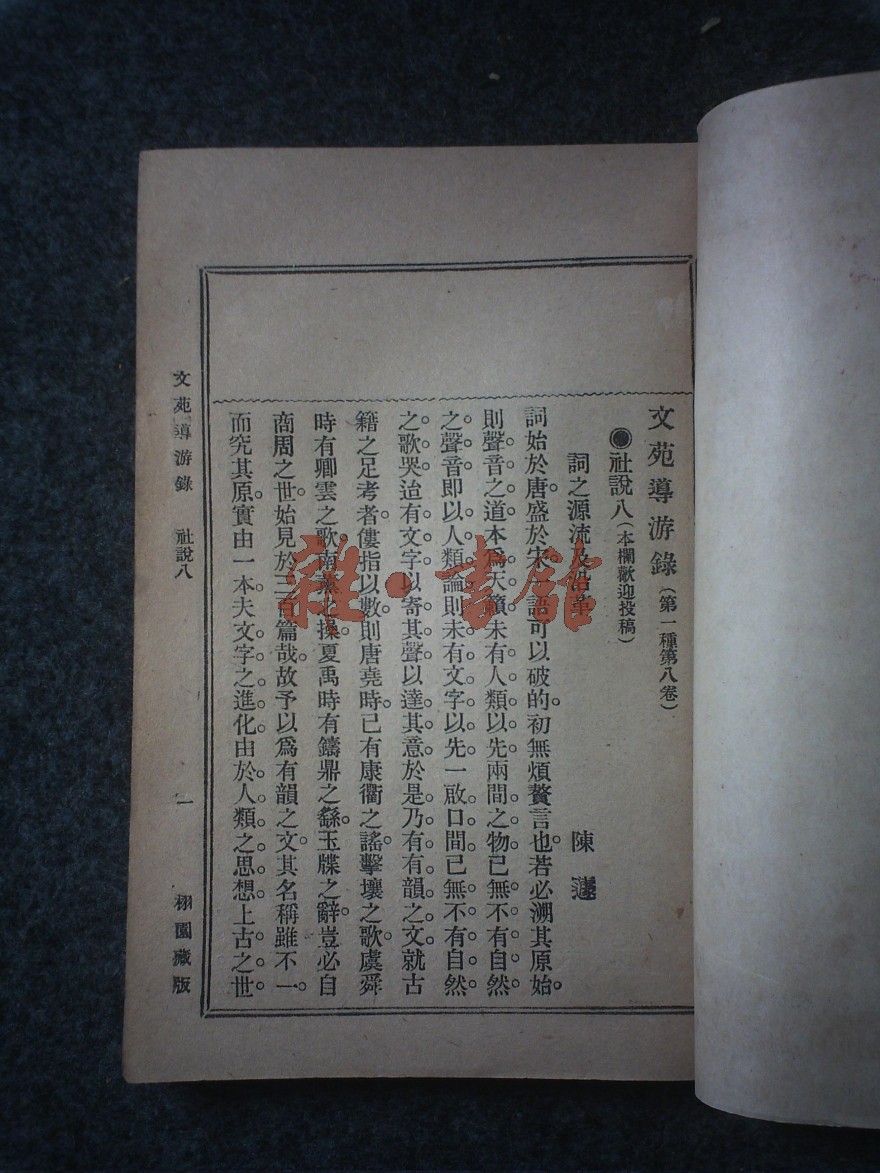 文苑導游錄(第一種第八卷)
●社說八(本欄歡迎投稿)
詞之源流及沿革 陳
詞始於唐。盛於宋。一語可以破的。初無煩贅言也。若必溯其原始。
則聲音之道。本爲天籟。未有人類以先。兩間之物。已無不有自然
之聲音。即以人類論。則未有文字以先。一啟口間。已無不有自然
之歌哭。迨有文字以寄其聲。以達其意。於是乃有有韻之文。就古
籍之足考者。僂指以數。則唐堯時。已有康衢之謠。擊壤之歌。虞舜
時有卿雲之歌。南薰之操。夏禹時有鑄鼎之繇。玉牒之辭。豈必自
商周之世。始見於三百篇哉。故予以爲有韻之文。其名稱雖不一。
而究其原。實由一本。夫文字之進化。由於人類之思想。上古之世
文苑導游錄 社說八 一 栩園藏版
雜·書館